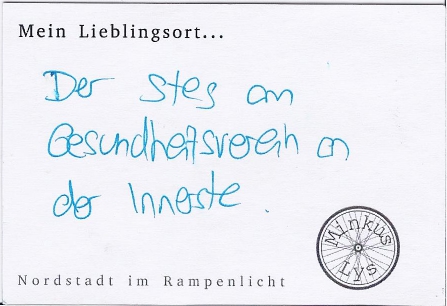 Mein Lieblingsort...
Der Steg am
Gesundheitsverein an
der Innerste.
Minkus
Lys
Nordstadt im Rampenlicht